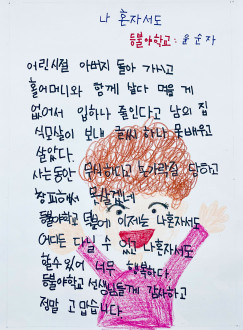 나 혼자서도
등불야학교 : 윤순자
어린시절 아버지 돌아 가시고
홀어머니와 함께 살다 먹을 게
없어서 입하나 줄인다고 남의 집
식모살이 보내 글씨 하나 못배우고
살았다.
사는동안 무시하다고 손가락질 당하고
창피해서 못살겠네
등불야학교 덕분에 이제는 나혼자서도
어디든 다닐 수 있고 나혼자서도
할수있어 너무 행복하다
등불야학교 선생님들게 감사하고
정말 고맙습니다